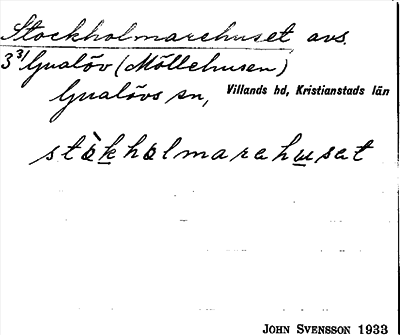 Stockholmarehuset avs.
3³¹ Gualöv (Möllehusen)
Gualövs sn, Villands hd, Kristianstads län
stòkholmarehusat
JOHN SVENSSON 1933